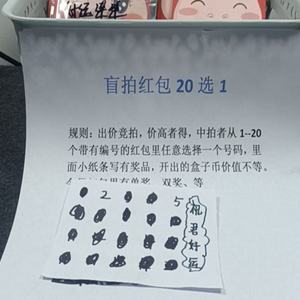 盲拍红包 20 选 1
规则：出价竞拍，价高者得，中拍者从 1--20
个带有编号的红包里任意选择一个号码，里
面小纸条写有奖品，开出的盒子币价值不等。
双奖、等
2 5
祝君好运